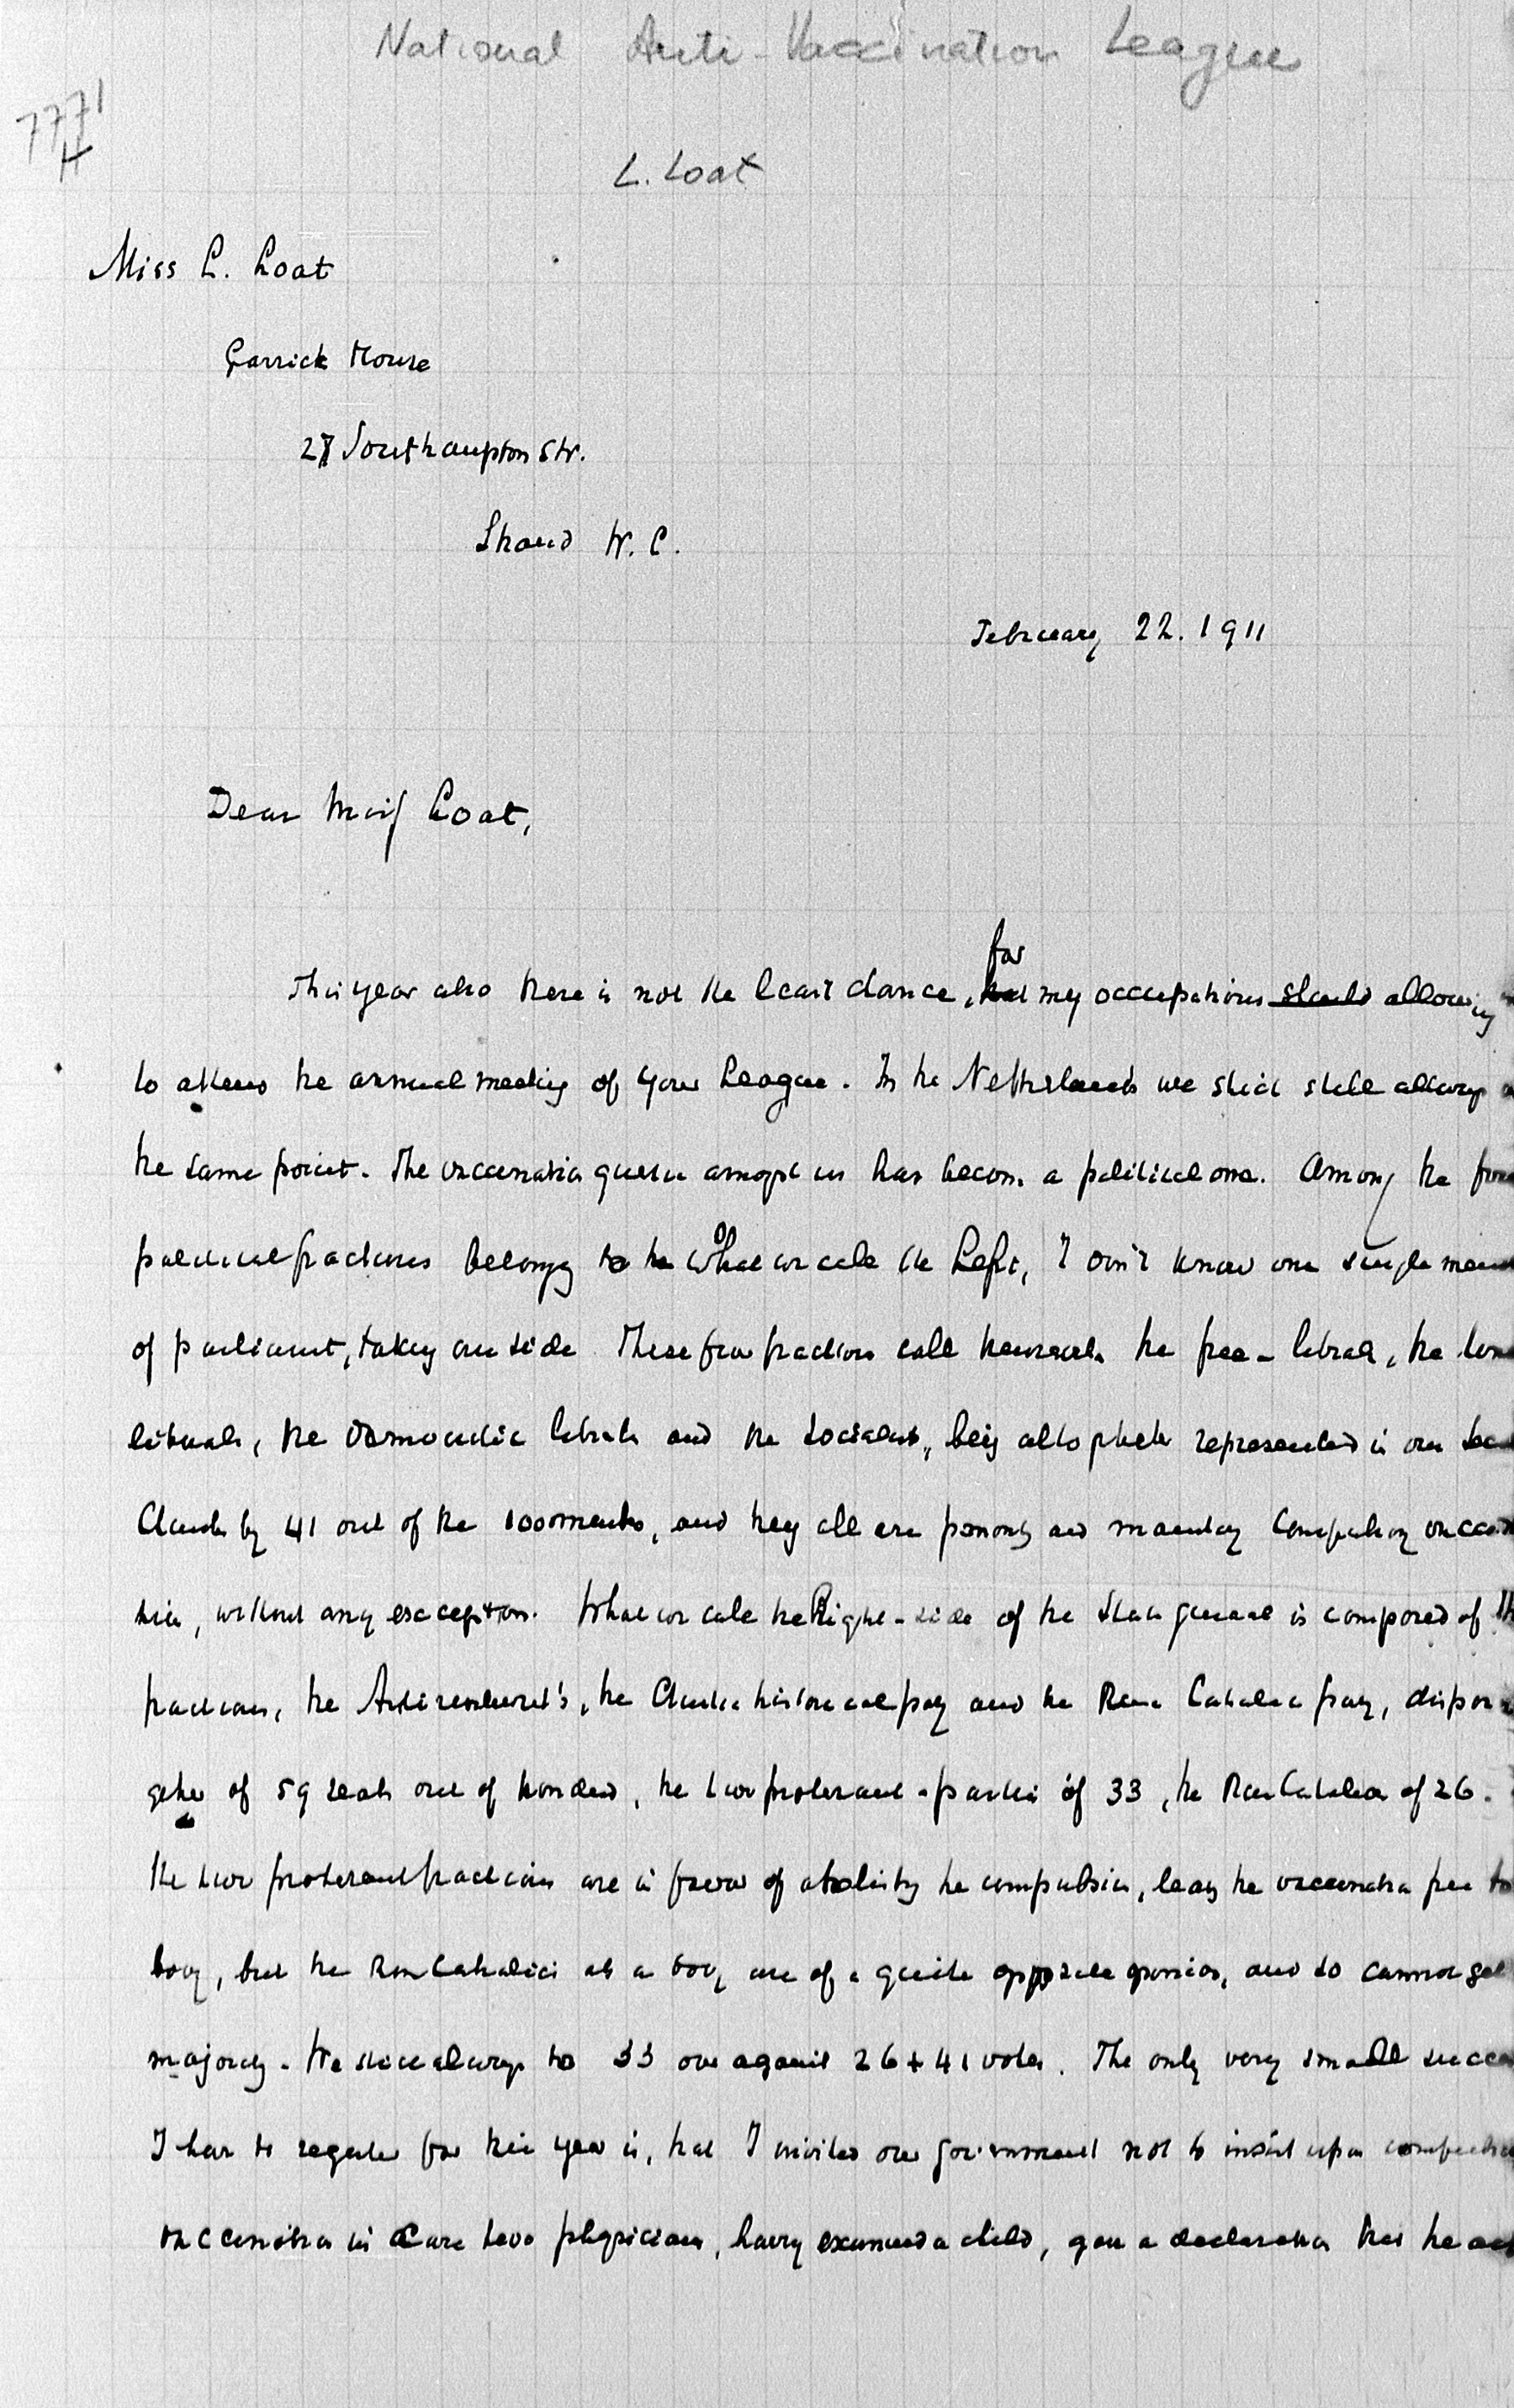 National Anti-Vaccination League
7771
H
L. Loat
Miss L. Loat
Garrick House
27 Southampton Str.
Strand W. C.
February 22. 1911
Dear Miss Loat,
for
This year also there is not the least chance, my occupations should allowing
to attend the annual meeting of your League. In the Netherlands we still always
the same point. The vaccination amongst us has become a political one. Among the four
political fractions belonging to the what we call the Left, I don't know one single
of parliament, taking our side. These four fractions call themselves the free-liberal, the
liberals, the democratic liberals and the socialists, being altogether represented in our
Chamber by 41 out of the 100 members, and they all are and compulsory
, without any exception. What we call the Right-side of the States general is composed of
fractions, the Antirevolut's, the Christian historical party and the Rom Catholic party,
gether of 59 seats out of hundred, the two protestant-parties of 33, the Rom Catholics of 26.
the two protestant fractions are in favor of abolishing the compulsion, leaving the vaccination free to
body, but the Rom Catholics as a body are of a quite opposite opinion, and so cannot get
majority. We always to 33 over against 26 + 41 votes. The only very small
I have to register for this year is, that I invited our government not to insist upon
vaccination in case two physicians, having examined a child, gave a declaration that he